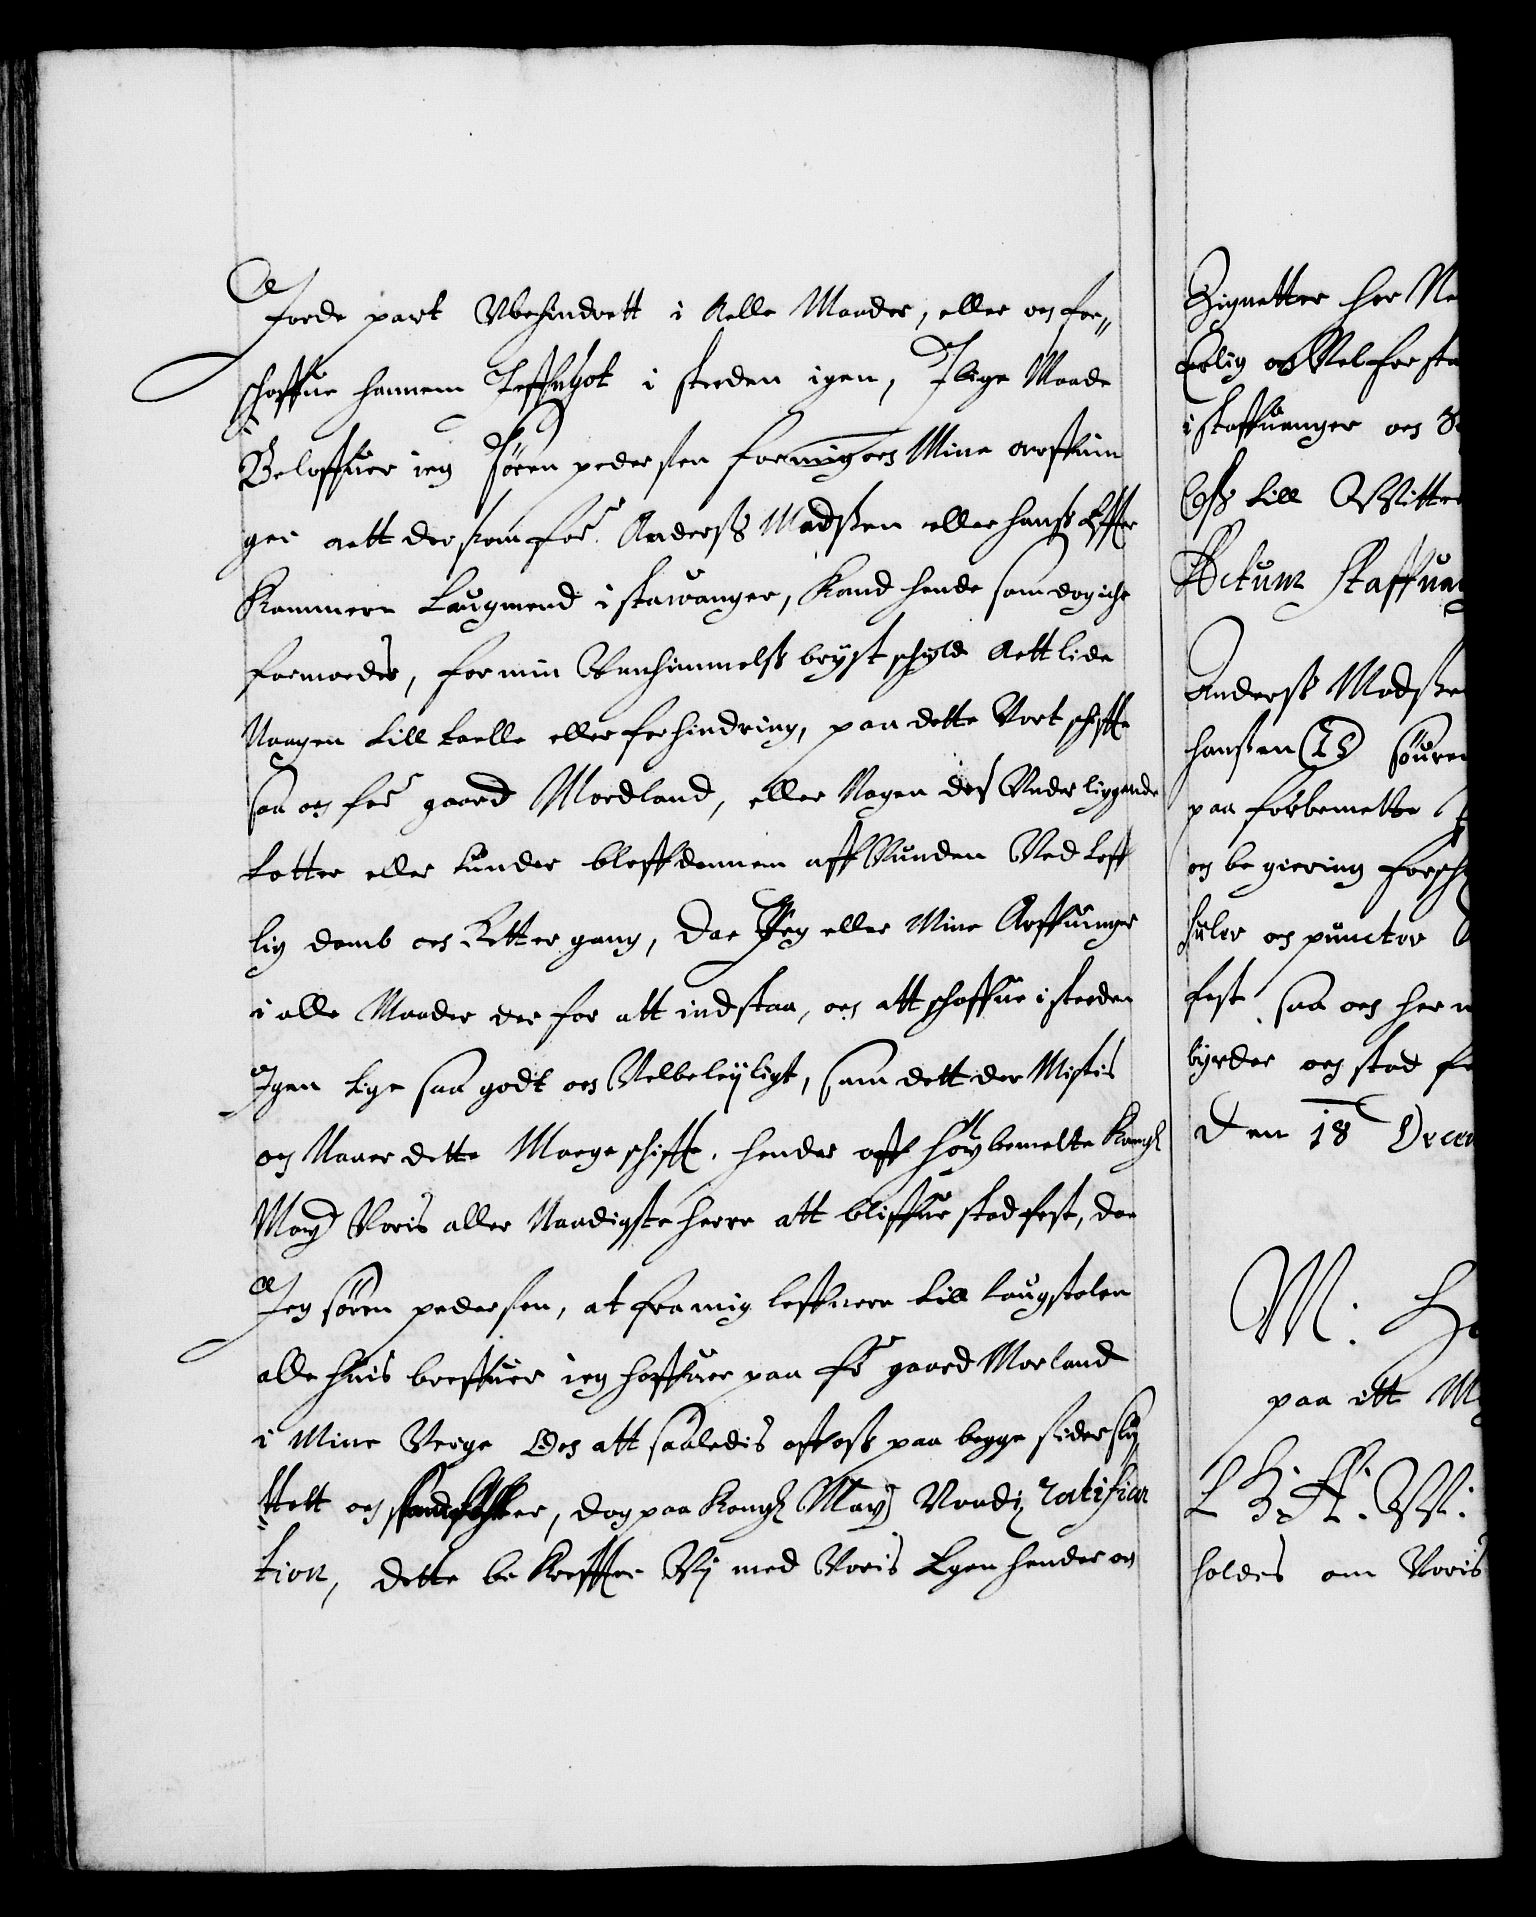 Jorde part Ubehindrett i Aalle Maader, eller og for„
schaffue hannem Jeffngot i steden igen, Jlige Maade
Beloffuer ieg Sören pedersen for mig och Mine arffuin
ger att dersom for: Anderss Madssen eller hanss Effter
Kommere Laugmend i stawanger, Kand hende som dog iche
formoedes, for min Vanhimmelss bryst schyld Aett lide
Nogen till talle eller forhindring, paa dette Vort schiffte
saa og for: gaard Mordland, eller Nogen dess Underliggende
lotter eller lunder bleff dennem aff Vunden Ved loff
lig domb och Retter gang, Da Jeg eller Mine Arffuinger
i alle Maader der for att indstaa, och att schaffue i steden
Jgen Lige saa godt och Velbeleyligt, som dett der Mistis
och Naar dette Mageschiffte. hender aff höybemelte Kongl
May: Voris aller Naadigste herre att bliffue stadfest, da
Jeg sören pedersen, at fra mig leffuere till laugstolen
alle huis breffuer ieg haffuer paa for: gaard Morland
i Mine Verge Och att saaledis aff oss paa begge sider slu
ttett och, dog paa Kongl May: Naadi: ratifica
tion, dette be Kreffter Vij med Voris Egen hender og

Zignetter her Ne
Erlig och Velforsta
i staffuanger och S
Oss till Witter
Actum Staffuan
Anderss Madsse
hanssen (LS) söuren
paa forbemelte
og begiering forsch
suler og puncter
fest, saa och her
byrder och stad fe
Den 18 Decem
M: H
paa itt M
L B: A: W:
holdes om Voris